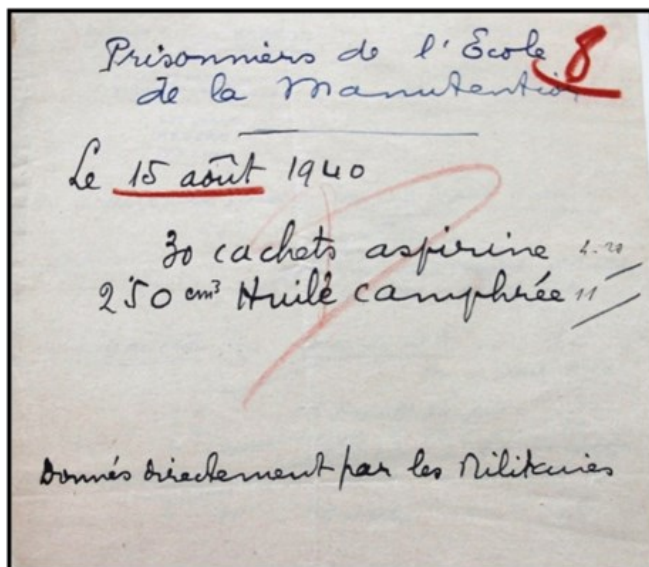 Prisonniers de l'Ecole 8
de la Manutention
Le 15 août 1940
30 cachets aspirine 4.20
250 cm³ Huile camphrée 11
Donnés directement par les Militaires